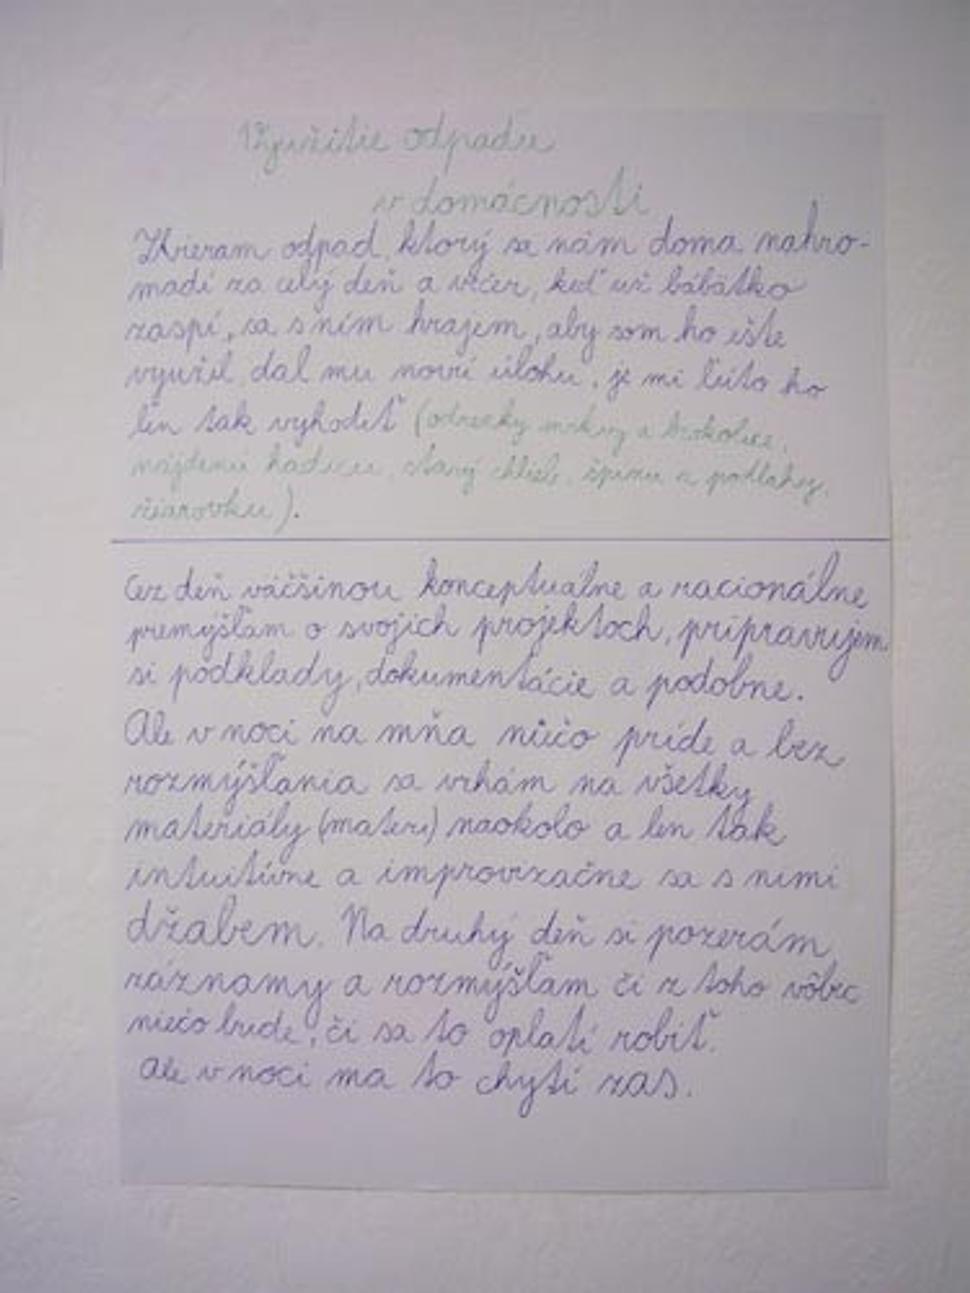 Využitie odpadu
v domácnosti
Zbieram odpad, ktorý sa nám doma nahro-
madí za celý deň a večer, keď už bábätko
zaspí, sa s ním hrajem, aby som ho ešte
využil, dal mu novú úlohu, je mi ľúto ho
len tak vyhodiť (odrezky mrkvy a brokolice,
nájdenú hadicu, starý chlieb, špinu z podlahy,
žiarovku).
Cez deň väčšinou konceptuálne a racionálne
premýšľam o svojich projektoch, pripravujem
si podklady, dokumentácie a podobne.
Ale v noci na mňa niečo príde a bez
rozmýšľania sa vrhám na všetky
materiály (materi) naokolo a len tak
intuitívne a improvizačne sa s nimi
džabem. Na druhý deň si pozerám
záznamy a rozmýšľam či z toho vôbec
niečo bude, či sa to oplatí robiť.
Ale v noci ma to chytí zas.